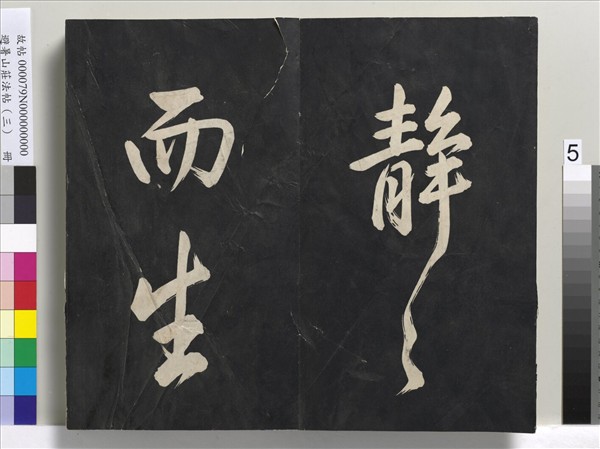 静々
而生
故帖 000079N000000000
避暑山莊法帖（三） 冊
5